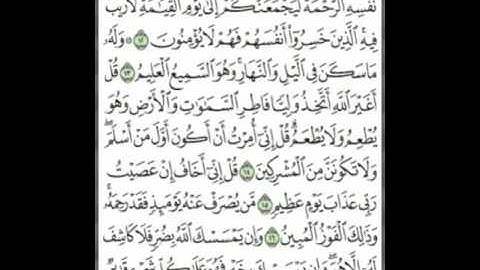 نَفْسِهِ الرَّحْمَةَ لَيَجْمَعَنَّكُمْ إِلَىٰ يَوْمِ الْقِيَامَةِ لَا رَيْبَ
فِيهِ الَّذِينَ خَسِرُوا أَنفُسَهُمْ فَهُمْ لَا يُؤْمِنُونَ ١٢ وَلَهُ
مَا سَكَنَ فِي اللَّيْلِ وَالنَّهَارِ وَهُوَ السَّمِيعُ الْعَلِيمُ ١٣ قُلْ
أَغَيْرَ اللَّهِ أَتَّخِذُ وَلِيًّا فَاطِرِ السَّمَاوَاتِ وَالْأَرْضِ وَهُوَ
يُطْعِمُ وَلَا يُطْعَمُ قُلْ إِنِّي أُمِرْتُ أَنْ أَكُونَ أَوَّلَ مَنْ أَسْلَمَ
وَلَا تَكُونَنَّ مِنَ الْمُشْرِكِينَ ١٤ قُلْ إِنِّي أَخَافُ إِنْ عَصَيْتُ
رَبِّي عَذَابَ يَوْمٍ عَظِيمٍ ١٥ مَّن يُصْرَفْ عَنْهُ يَوْمَئِذٍ فَقَدْ رَحِمَهُ
وَذَٰلِكَ الْفَوْزُ الْمُبِينُ ١٦ وَإِن يَمْسَسْكَ اللَّهُ بِضُرٍّ فَلَا كَاشِفَ